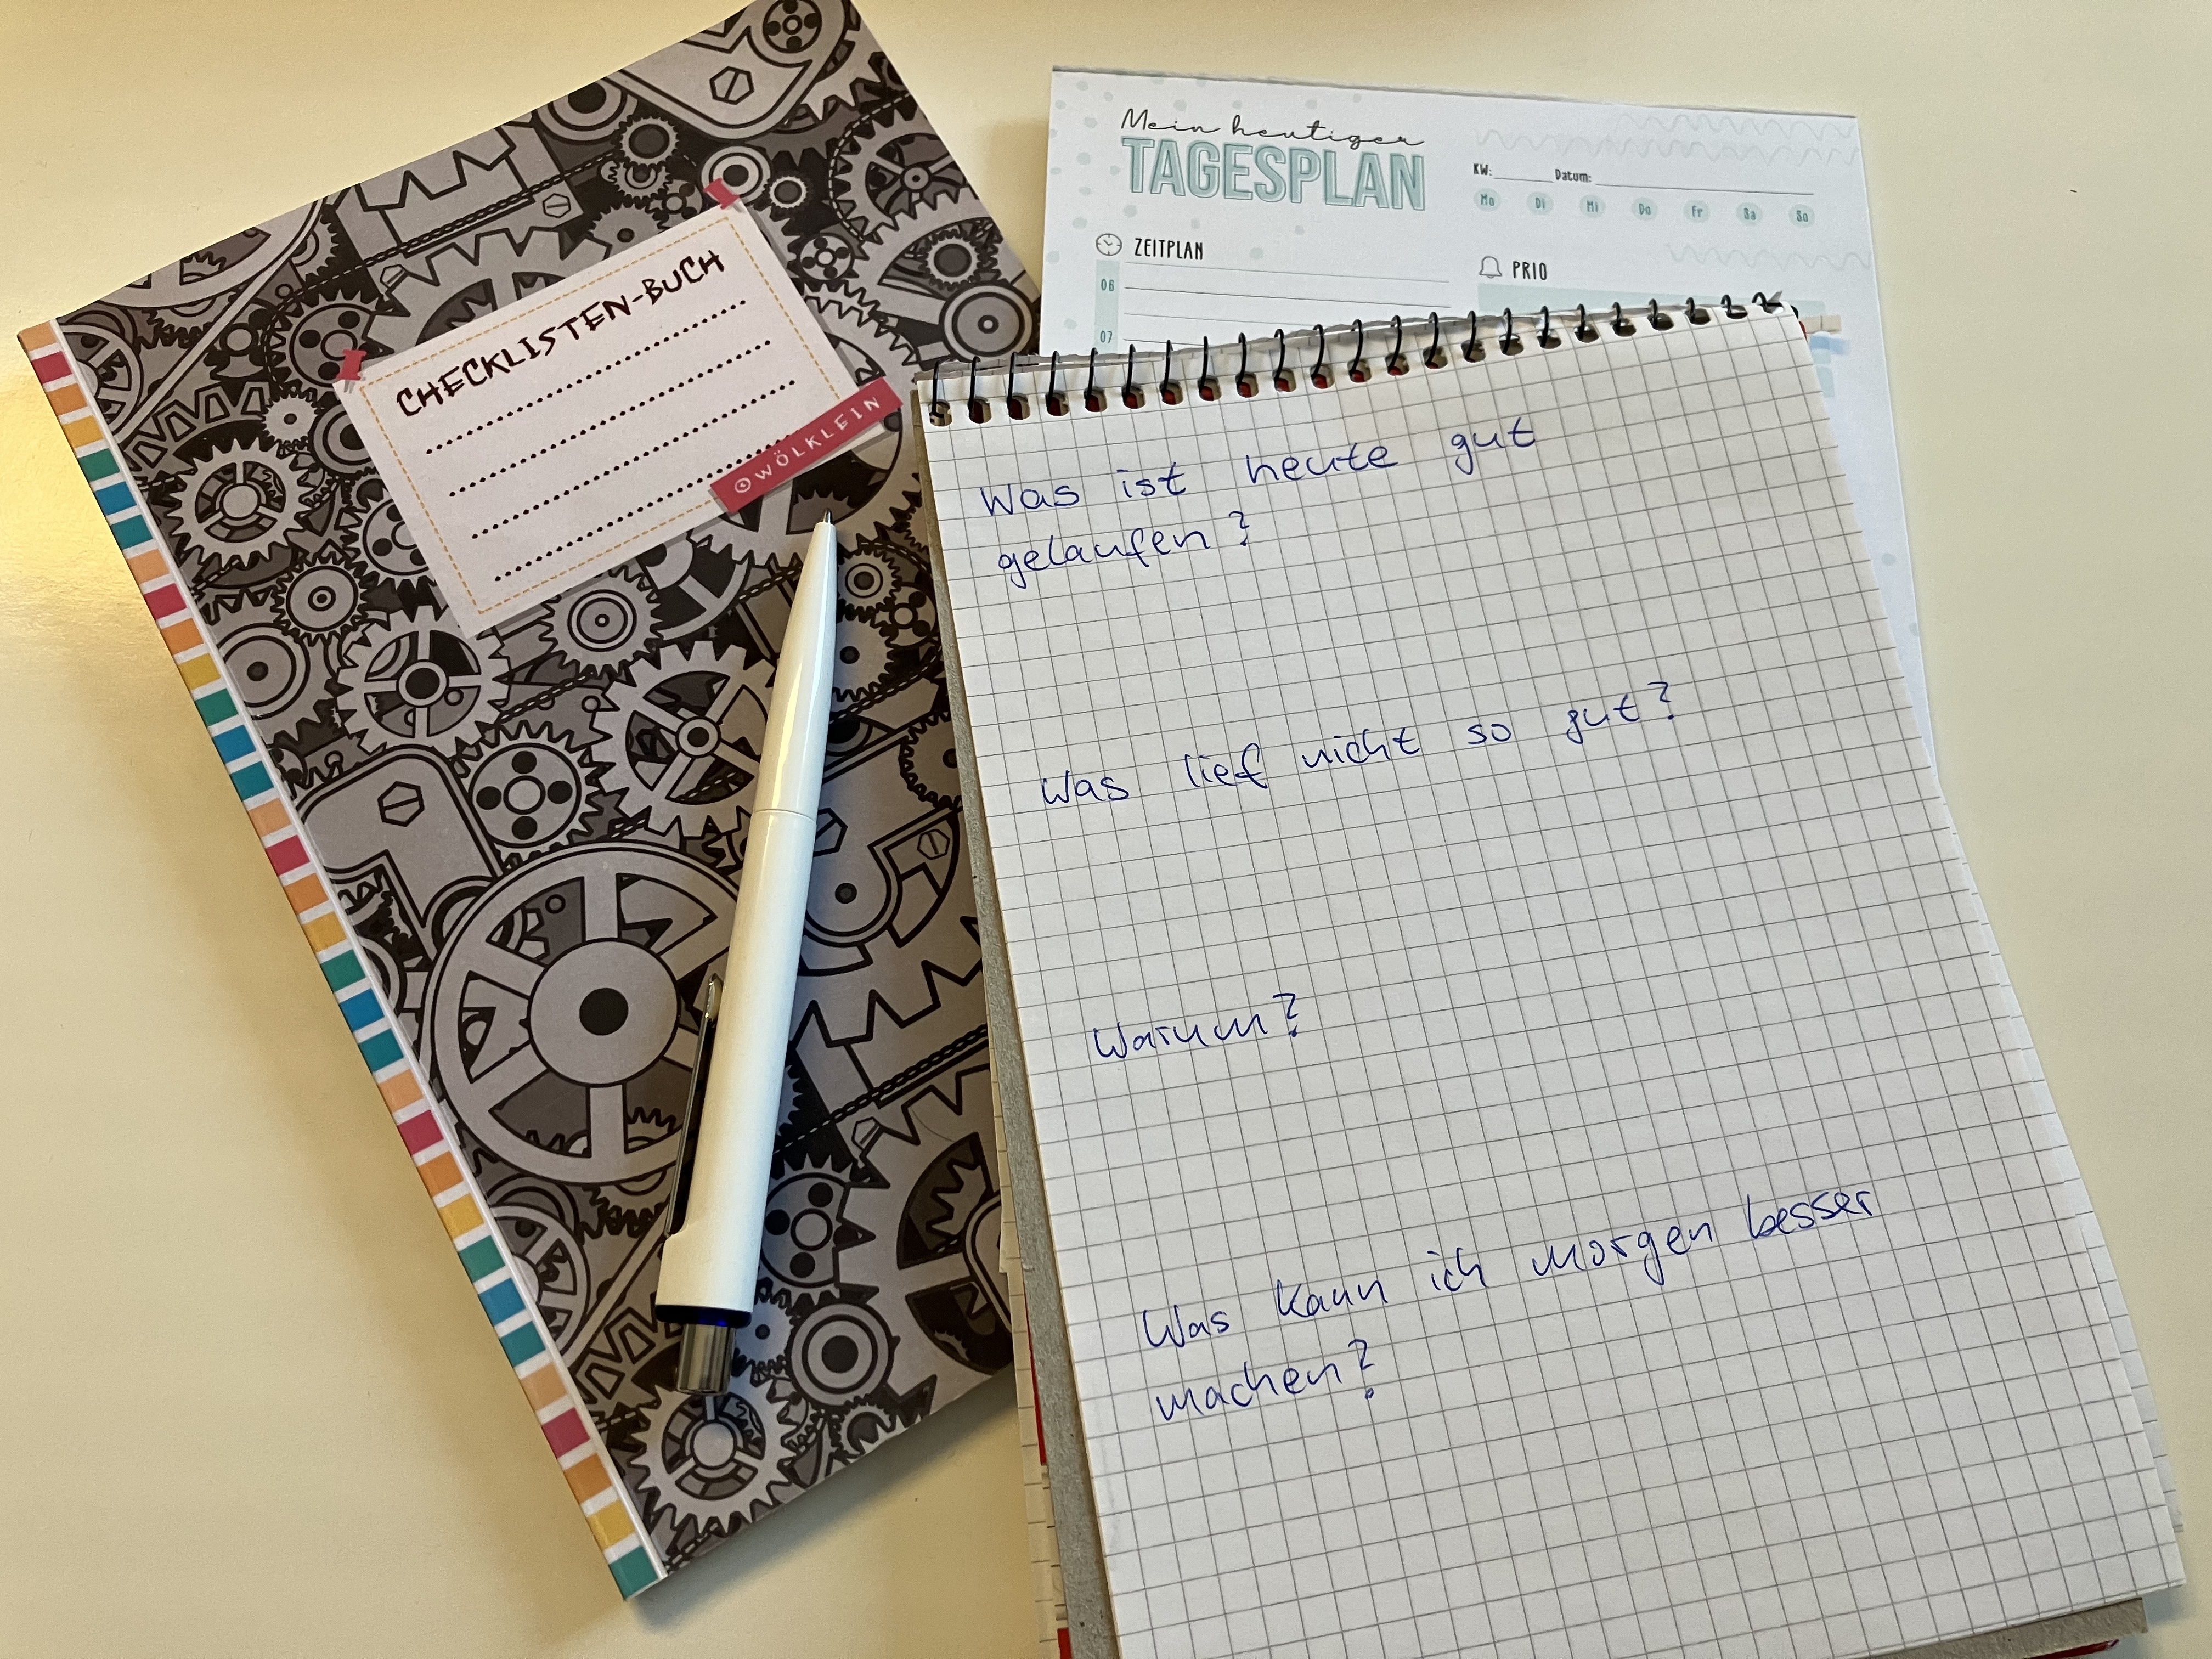 CHECKLISTEN-BUCH
WÖLKLEIN
Mein heutiger
TAGESPLAN
KW: Datum:
Mo Di Mi Do Fr Sa So
ZEITPLAN
PRIO
06
07
Was ist heute gut
gelaufen?
Was lief nicht so gut?
Warum?
Was kann ich morgen besser
machen?